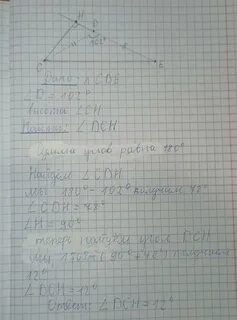 H
D
102°
C
E
Дано: Δ CDE
∠D = 102°
высота CH
Найти: ∠DCH
сумма углов равна 180°
Найдём ∠CDH
Мы 180° - 102° получим 78°
∠CDH = 78°
∠H = 90°
теперь найдём угол DCH
180° - (90° + 78°) получим
12°
∠DCH = 12°
Ответ: ∠DCH = 12°